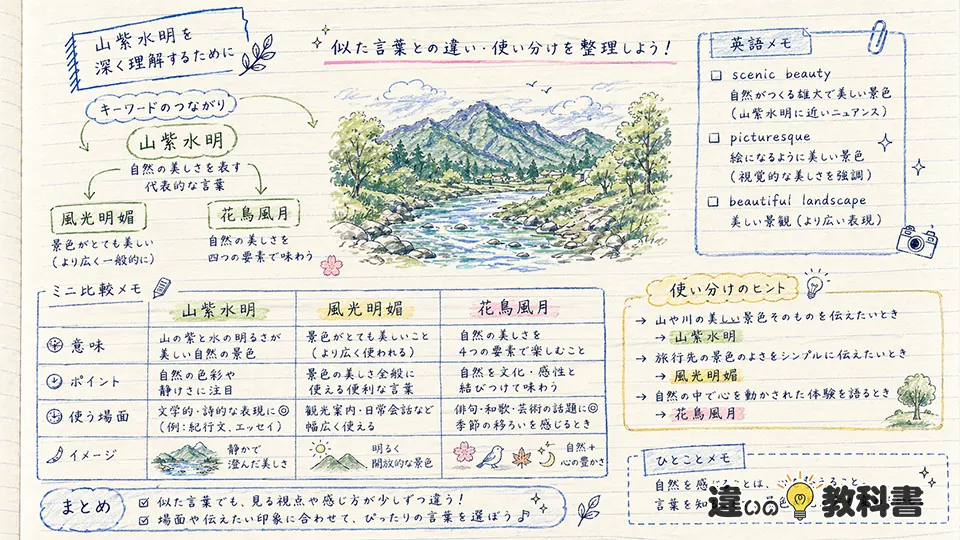 山紫水明を
深く理解するために
似た言葉との違い・使い分けを整理しよう！
キーワードのつながり
山紫水明
自然の美しさを表す
代表的な言葉
風光明媚
景色がとても美しい
（より広く一般的に）
花鳥風月
自然の美しさを
四つの要素で味わう
英語メモ
scenic beauty
自然がつくる雄大で美しい景色
（山紫水明に近いニュアンス）
picturesque
絵になるように美しい景色
（視覚的な美しさを強調）
beautiful landscape
美しい景観（より広い表現）
ミニ比較メモ
山紫水明 風光明媚 花鳥風月
意味
山の紫と水の明るさが
美しい自然の景色
景色がとても美しいこと
（より広く使われる）
自然の美しさを
4つの要素で楽しむこと
ポイント
自然の色彩や
静けさに注目
景色の美しさ全般に
使える便利な言葉
自然を文化・感性と
結びつけて味わう
使う場面
文学的・詩的な表現に◎
（例：紀行文、エッセイ）
観光案内・日常会話など
幅広く使える
俳句・和歌・芸術の話題に◎
季節の移ろいを感じるとき
イメージ
静かで
澄んだ美しさ
明るく
開放的な景色
自然＋
心の豊かさ
使い分けのヒント
→ 山や川の美しい景色そのものを伝えたいとき
→ 山紫水明
→ 旅行先の景色のよさをシンプルに伝えたいとき
→ 風光明媚
→ 自然の中で心を動かされた体験を語るとき
→ 花鳥風月
ひとことメモ
自然を感じることは、
言葉を知
まとめ
似た言葉でも、見る視点や感じ方が少しずつ違う！
場面や伝えたい印象に合わせて、ぴったりの言葉を選ぼう♪
違いの教科書